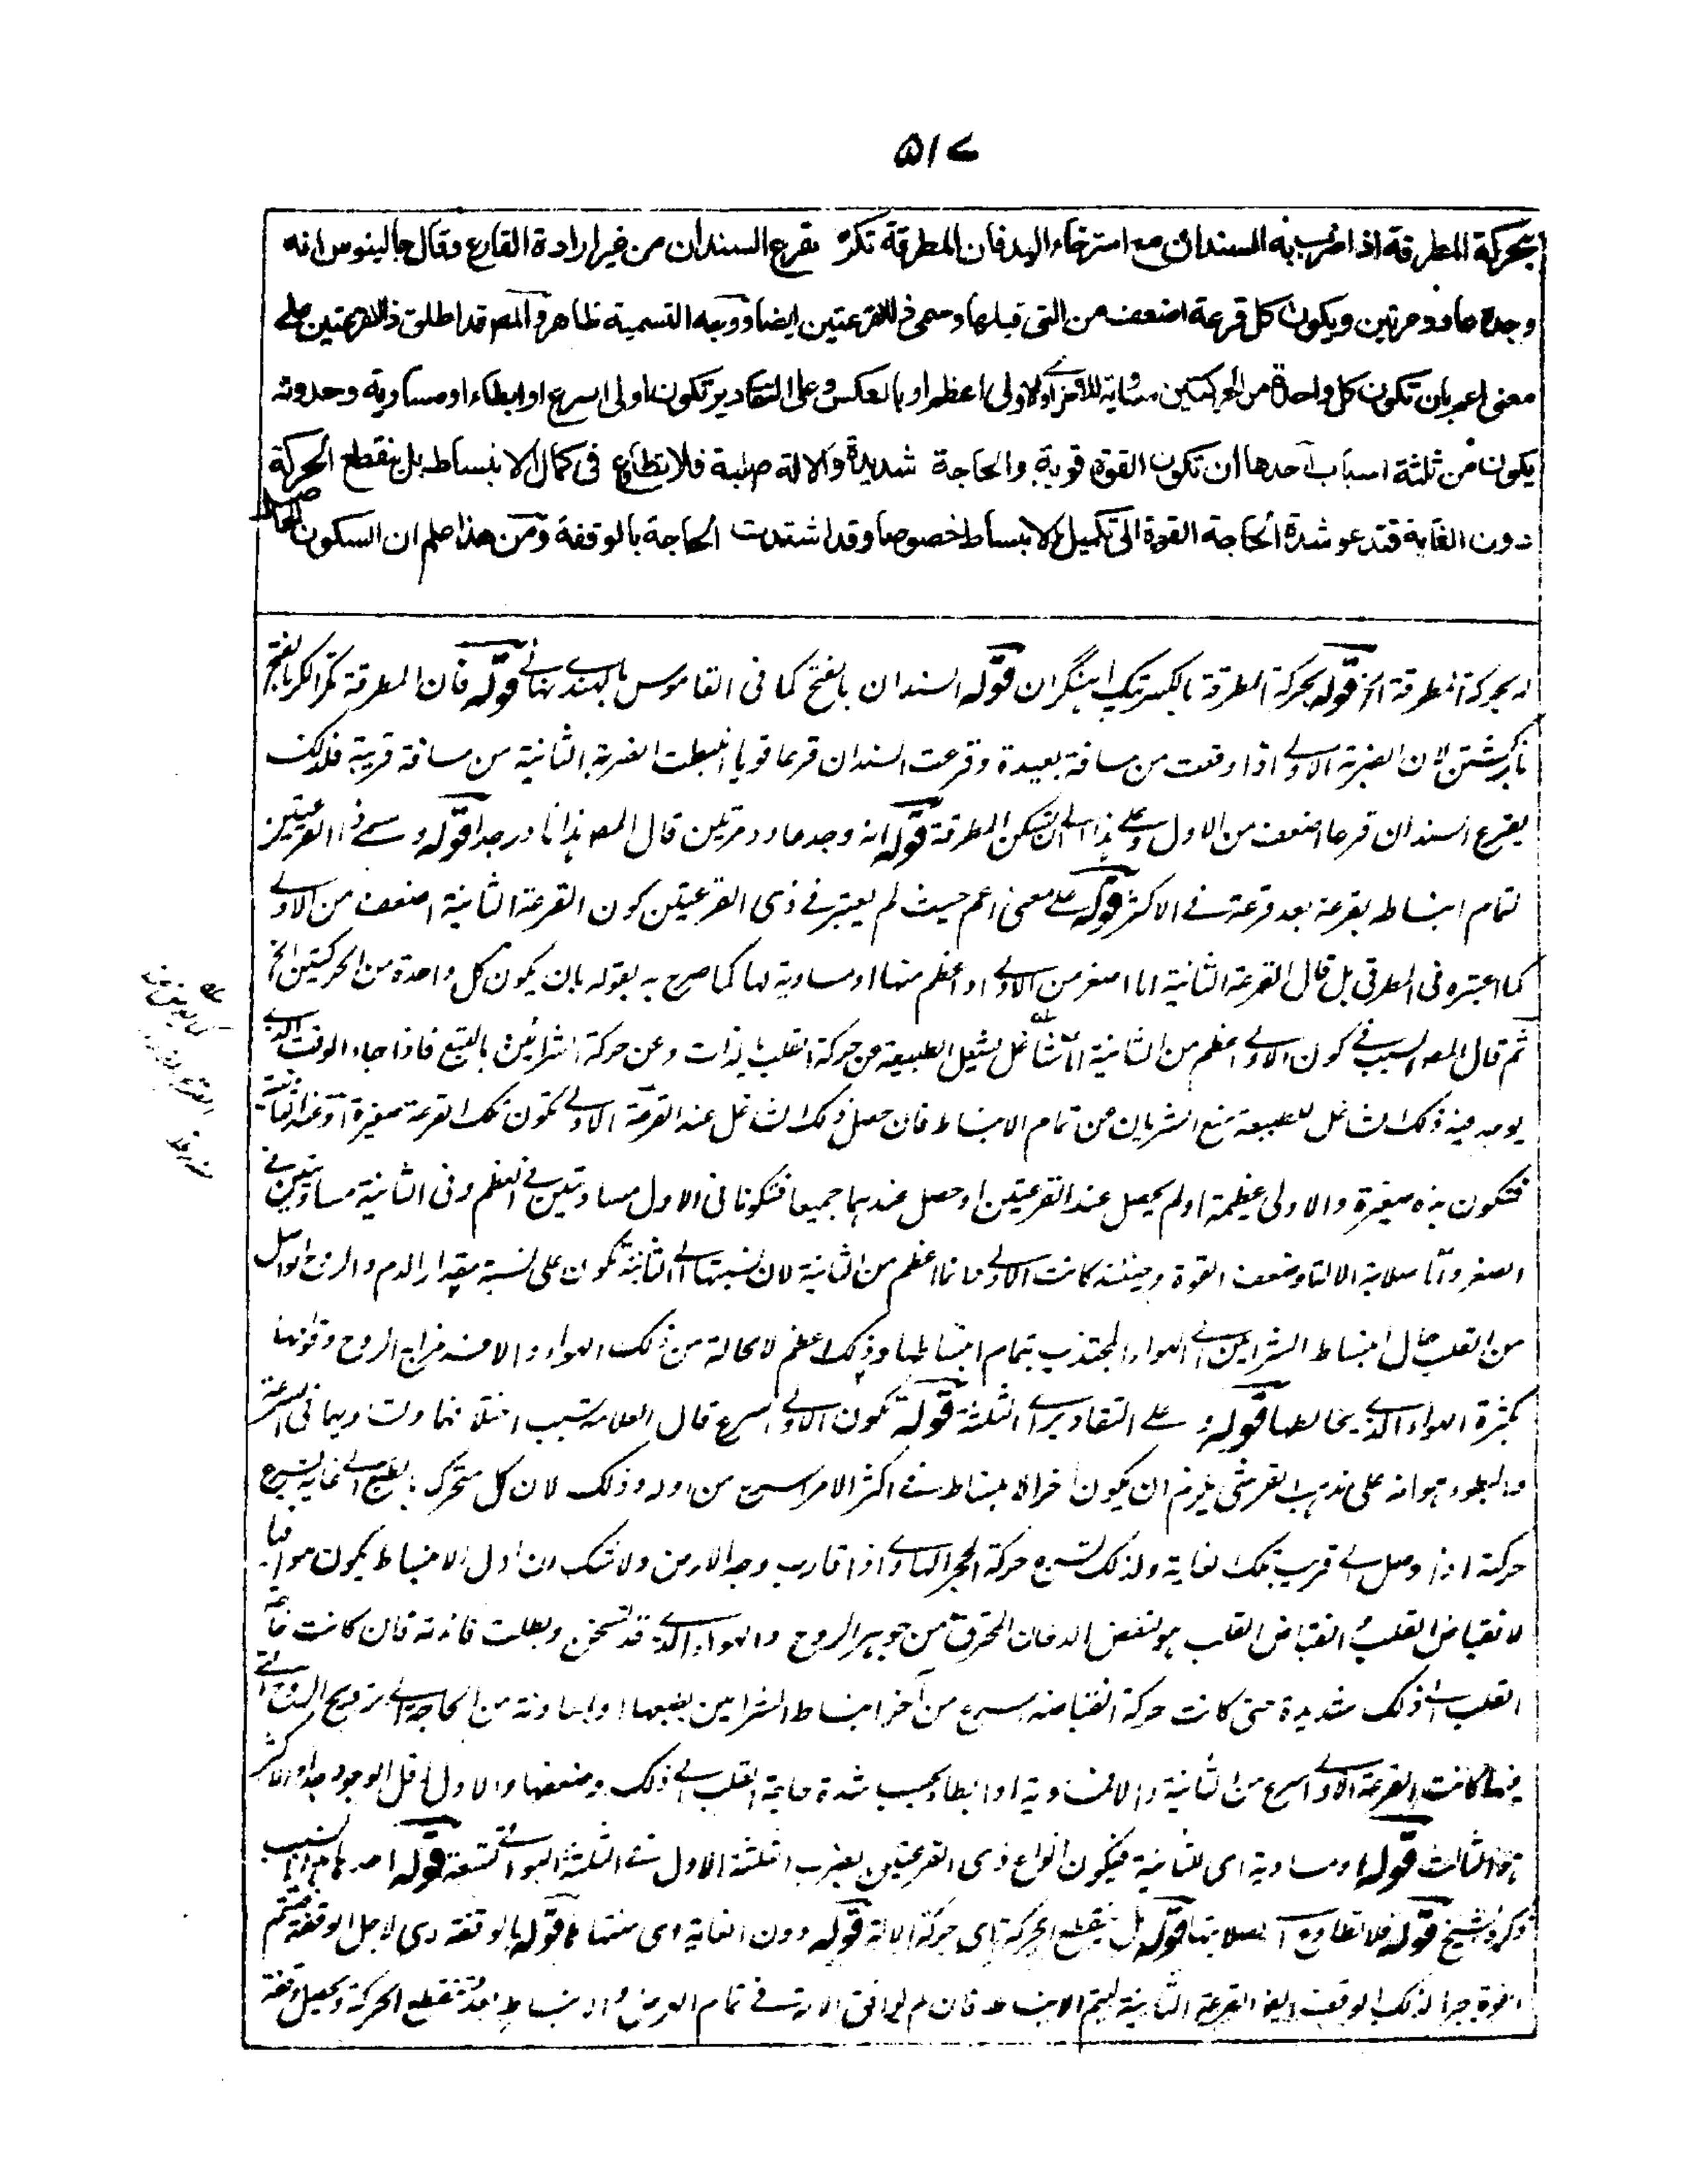 ۵۱۷
بحركة المطرقة اذا ضرب به السندان مع استرخاء اليد فان المطرقة تكرّ تقرع السندان من غير ارادة القارع وقال جالينوس انه
وجده عاود مرتين ويكون كل قرعة اضعف من التى قبلها وسمى ذا القرعتين ايضا ووجه التسمية ظاهر والمص قد اطلق ذا القرعتين على
معنى اعم بان تكون كل واحدة من الحركتين مساوية للاخرى او الاولى اعظم او بالعكس وعلى التقادير تكون اولى اسرع او ابطاء او مساوية وحدوثه
يكون من ثلثة اسباب احدها ان تكون القوة قوية والحاجة شديدة والالة صلبة فلا تطاوع فى كمال الانبساط بل ينقطع الحركة
دون الغاية فتدعو شدة الحاجة القوة الى تكميل الانبساط خصوصا وقد اشتدت الحاجة بالوقفة ومن هذا علم ان السكون
بحركة المطرقة الخ قوله بحركة المطرقة بالكسر آهنگران قوله السندان بالفتح كما فى القاموس قوله فان المطرقة تكر الكر بالفتح
بازگشتن لان الضربة الاولى اذا وقعت من مسافة بعيدة وقرعت السندان قرعا قويا الضربة الثانية من مسافة قريبة فلذلك
يقرع السندان قرعا اضعف من الاول وعلى هذا الى ان تسكن المطرقة قوله انه وجد عاود مرتين قال المص هذا نادر جدا قوله وسمى ذا القرعتين
لتمام انبساطه بقرعة بعد قرعة فى الاكثر قوله على معنى اعم حيث لم يعتبر فى ذى القرعتين كون القرعة الثانية اضعف من الاولى
كما اعتبره فى المطرقى بل قال القرعة الثانية اما اصغر من الاولى او اعظم منها او مساوية لها كما صرح به بقوله بان يكون كل واحدة من الحركتين الخ
ثم قال المص السبب فى كون الاولى اعظم من الثانية اما شاغل يشغل الطبيعة عن حركة القلب بالذات وعن حركة الشرائين بالتبع فاذا جاء الوقت الذى
يوجد فيه ذلك الشاغل للطبيعة منع الشريان من تمام الانبساط فان حصل ذلك الشاغل عند القرعة الاولى تكون تلك القرعة صغيرة او عند الثانية
فتكون هذه صغيرة والاولى عظيمة او لم يحصل عند القرعتين او حصل عندهما جميعا فتكونا فى الاول مساويتين فى العظم وفى الثانية مساويتين فى
الصغر واما صلابة الالة او ضعف القوة وحينئذ كانت الاولى دائما اعظم من الثانية لان نسبتها الى الثانية تكون على نسبة مقدار الدم والروح الواصل
من القلب حال انبساط الشرايين الى الهواء المجتذب بتمام انبساطها وذلك اعظم لا محالة من ذلك الهواء والا فسد مزاج الروح وقوامها
بكثرة الهواء الذى يخالطها قوله وعلى التقادير اى الثلثة قوله تكون الاولى اسرع قال العلامة سبب اختلافهما وتساويهما فى السرعة
والبطوء هو انه على مذهب القرشى يلزم ان يكون آخر الانبساط فى اكثر الامر اسرع من اوله وذلك لان كل متحرك بالطبع الى غاية تسرع
حركته اذا وصل الى قريب تلك الغاية ولذلك تسرع حركة الحجر الهاوى اذا قارب وجه الارض ولا شك ان اول الانبساط يكون موافقا
لانقباض القلب وانقباض القلب هو لنفض الدخان المحترق من جوهر الروح والهواء الذى قد تسخن وبطلت فائدته فان كانت حاجة
القلب الى ذلك شديدة حتى كانت حركة انقباضه اسرع من آخر انبساط الشرايين من الحاجة الى ترويح الروح
كانت القرعة الاولى اسرع من الثانية والا لمتساوية او ابطا بحسب شدة حاجة القلب الى ذلك وضعفها والاول اقل الوجود جدا والاكثر
هو الثالث قوله او مساوية اى للثانية فيكون انواع ذى القرعتين بضرب الثلثة الاول فى الثلثة البواقى تسعة قوله احدها
ذكره الشيخ قوله فلا تطاوع اى لصلابتها قوله بل ينقطع الحركة اى حركة الالة قوله دون الغاية اى منتهاها قوله بالوقفة اى لاجل الوقفة
القوة جبرا لذلك الوقف القرعة الثانية ليتم الانبساط فان لم توافق الالة فى تمام الغرض تنقطع الحركة ويحصل وقفة